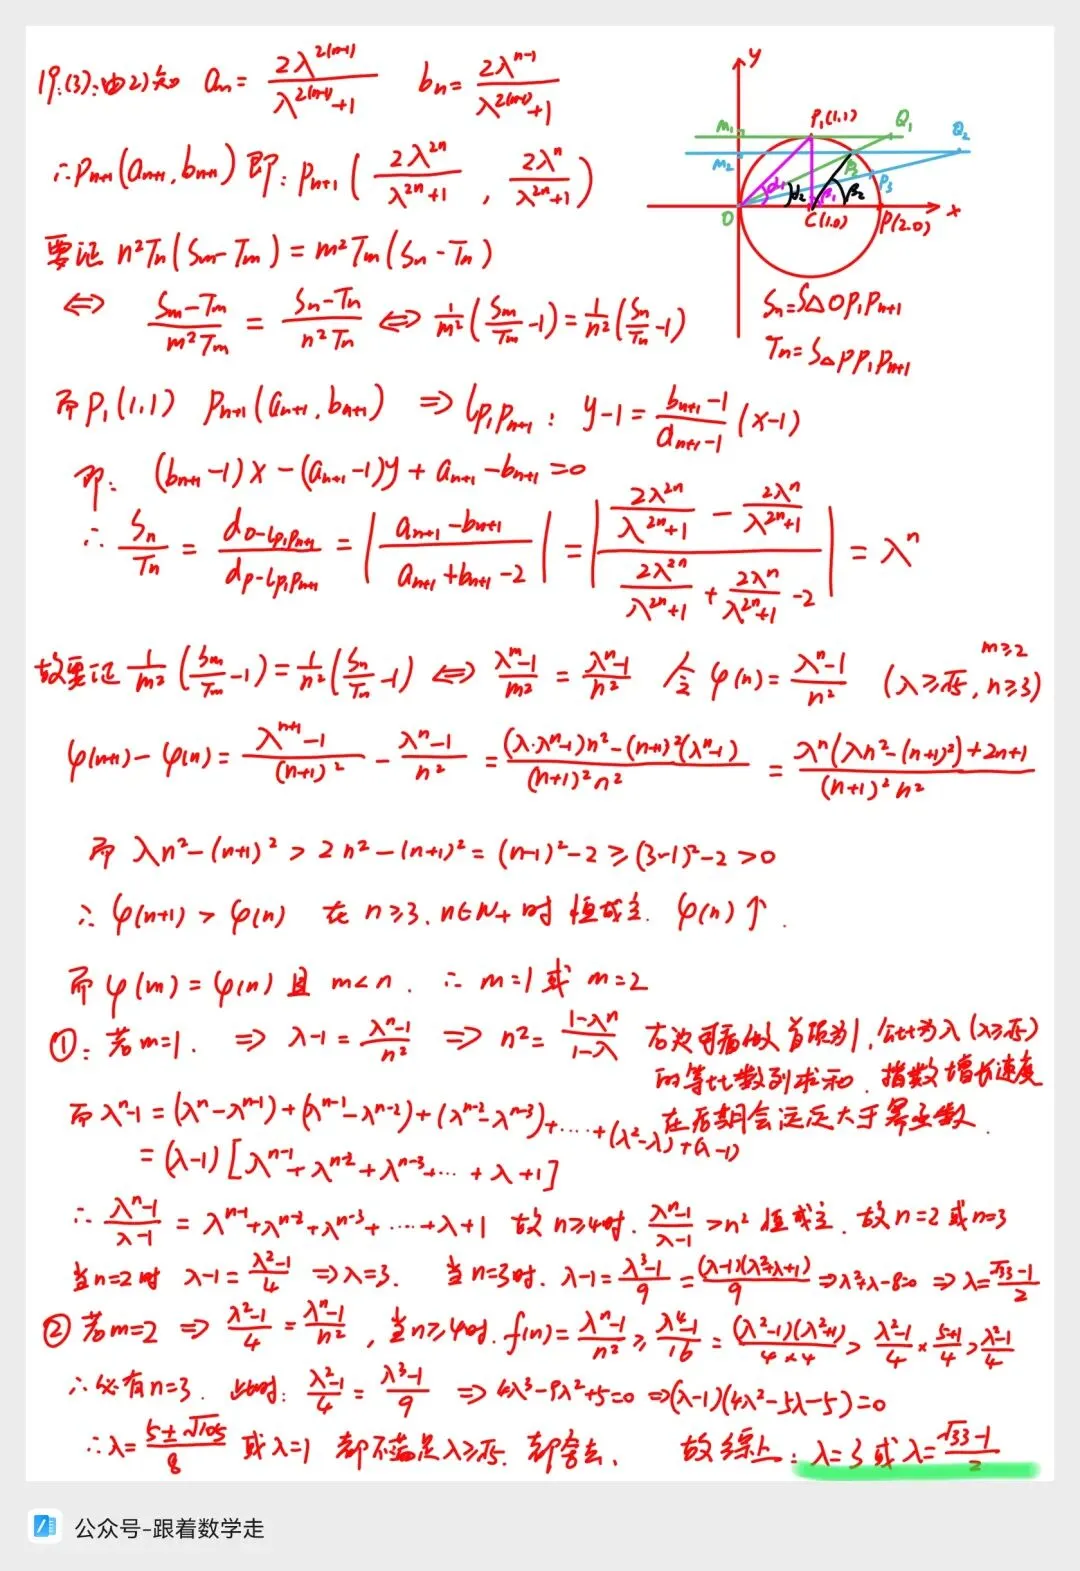 19.(3):由2)知 aₙ= 2λ^{2(n-1)}/(λ^{2(n-1)}+1) bₙ= 2λ^{n-1}/(λ^{2(n-1)}+1)
∴Pₙ₊₁(aₙ₊₁,bₙ₊₁) 即: Pₙ₊₁( 2λ^{2n}/(λ^{2n}+1) , 2λ^n/(λ^{2n}+1) )
y
M₁
P₁(1,1)
Q₁
Q₂
M₂
P₂
P₃
α₁
α₂
β₁
β₂
O
C(1,0)
P(2,0)
x
Sₙ=S△OP₁Pₙ₊₁
Tₙ=S△PP₁Pₙ₊₁
要证 n²Tₙ(Sₘ-Tₘ)=m²Tₘ(Sₙ-Tₙ)
⇔ (Sₘ-Tₘ)/(m²Tₘ) = (Sₙ-Tₙ)/(n²Tₙ) ⇔ 1/m²(Sₘ/Tₘ-1)=1/n²(Sₙ/Tₙ-1)
而P₁(1,1) Pₙ₊₁(aₙ₊₁,bₙ₊₁) ⇒ l_{P₁Pₙ₊₁}: y-1= (bₙ₊₁-1)/(aₙ₊₁-1) (x-1)
即: (bₙ₊₁-1)x-(aₙ₊₁-1)y+aₙ₊₁-bₙ₊₁=0
∴ Sₙ/Tₙ = d_{O-lP₁Pₙ₊₁}/d_{P-lP₁Pₙ₊₁} = |(aₙ₊₁-bₙ₊₁)/(aₙ₊₁+bₙ₊₁-2)| = |(2λ^{2n}/(λ^{2n}+1) - 2λ^n/(λ^{2n}+1))/(2λ^{2n}/(λ^{2n}+1) + 2λ^n/(λ^{2n}+1) -2)| = λ^n
故要证 1/m²(Sₘ/Tₘ-1)=1/n²(Sₙ/Tₙ-1) ⇔ (λ^m-1)/m² = (λ^n-1)/n² 令 φ(n)= (λ^n-1)/n² (λ≥√5, n≥3) m≥2
φ(n+1)-φ(n)= (λ^{n+1}-1)/(n+1)² - (λ^n-1)/n² = ((λ·λ^n-1)n²-(n+1)²(λ^n-1))/((n+1)²n²) = (λ^n(λn²-(n+1)²)+2n+1)/((n+1)²n²)
而 λn²-(n+1)²>2n²-(n+1)²=(n-1)²-2≥(3-1)²-2>0
∴ φ(n+1)>φ(n) 在n≥3.n∈N₊时 恒成立. φ(n)↑.
而φ(m)=φ(n)且 m<n. ∴ m=1或 m=2
①: 若m=1. ⇒ λ-1= (λ^n-1)/n² ⇒ n²= (1-λ^n)/(1-λ) 右次可看做首项为1,公比为λ(λ≥√5)
的等比数列求和. 指数增长速度
在后期会远远大于幂函数.
而λ^n-1=(λ^n-λ^{n-1})+(λ^{n-1}-λ^{n-2})+(λ^{n-2}-λ^{n-3})+……+(λ²-λ)+(λ-1)
=(λ-1)[λ^{n-1}+λ^{n-2}+λ^{n-3}+…+λ+1]
∴ (λ^n-1)/(λ-1) = λ^{n-1}+λ^{n-2}+λ^{n-3}+……+λ+1 故n≥4时. (λ^n-1)/(λ-1) >n² 恒成立. 故n=2或n=3
当n=2时 λ-1= (λ²-1)/4 ⇒λ=3. 当n=3时. λ-1= (λ³-1)/9 = (λ-1)(λ²+λ+1)/9 ⇒λ²+λ-8=0 ⇒ λ= (√33-1)/2
② 若m=2 ⇒ (λ²-1)/4 = (λ^n-1)/n² , 当n≥4时. f(n)= (λ^n-1)/n² ≥ (λ⁴-1)/16 = (λ²-1)(λ²+1)/(4×4) > (λ²-1)/4 × (5+1)/4 > (λ²-1)/4
∴必有n=3. 此时: (λ²-1)/4 = (λ³-1)/9 ⇒ 4λ³-9λ²+5=0 ⇒(λ-1)(4λ²-5λ-5)=0
∴λ= (5±√105)/8 或λ=1 都不满足λ≥√5. 都舍去. 故综上: λ=3或λ= (√33-1)/2
公众号-跟着数学走